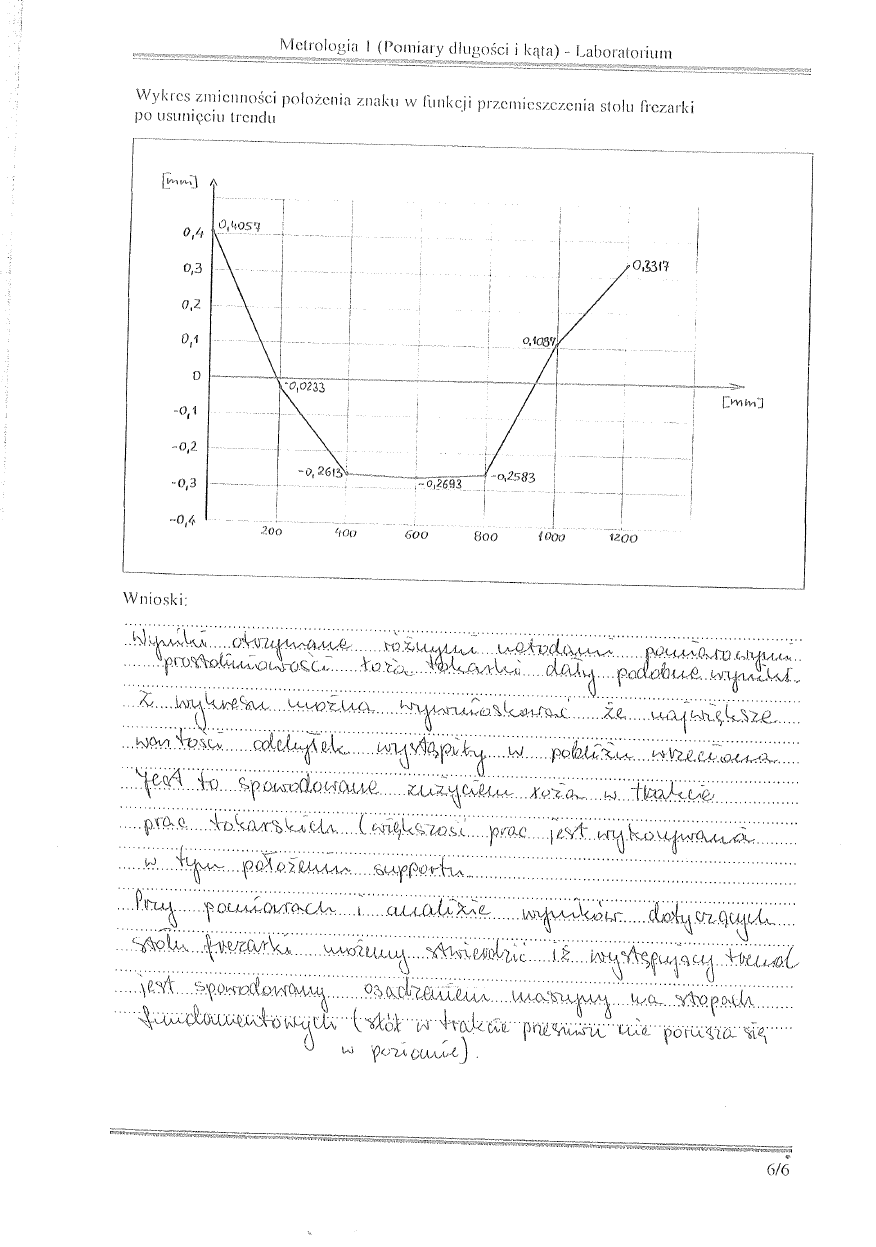 Metrologia 1 (Pomiary długości i kąta) - Laboratorium
Wykres zmienności położenia znaku w funkcji przemieszczenia stołu frezarki
po usunięciu trendu
[mm]
0,4057
0,4
0,3
0,3317
0,2
0,1
0,1087
0
-0,0233
[mm]
-0,1
-0,2
-0,2613
-0,2583
-0,3
-0,2693
-0,4
200 400 600 800 1000 1200
Wnioski:
Wyniki otrzymane różnymi metodami pomiarowymi
prostoliniowości łoża tokarki dały podobne wyniki.
Z wykresu można wywnioskować że największe
wartości odchyłek wystąpiły w pobliżu wrzeciona
Jest to spowodowane zużyciem łoża w trakcie
prac tokarskich (większość prac jest wykonywana
w tym położeniu supportu.
Przy pomiarach i analizie wyników dotyczących
stołu frezarki możemy stwierdzić iż występujący trend
jest spowodowany osadzeniem maszyny na stopach
fundamentowych (stół w trakcie przesuwu nie porusza się
w poziomie).
6/6